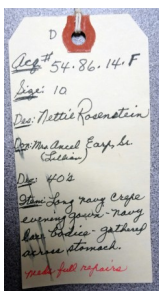 D
Acq# 54.86.14.F
Size: 10
Des: Nettie Rosenstein
Don: Mrs. Ancel Earp, Sr.
(Lillian)
Date: 40's
Item: Long navy crepe
evening gown - navy
bodice - gathered
across stomach.
made full repairs